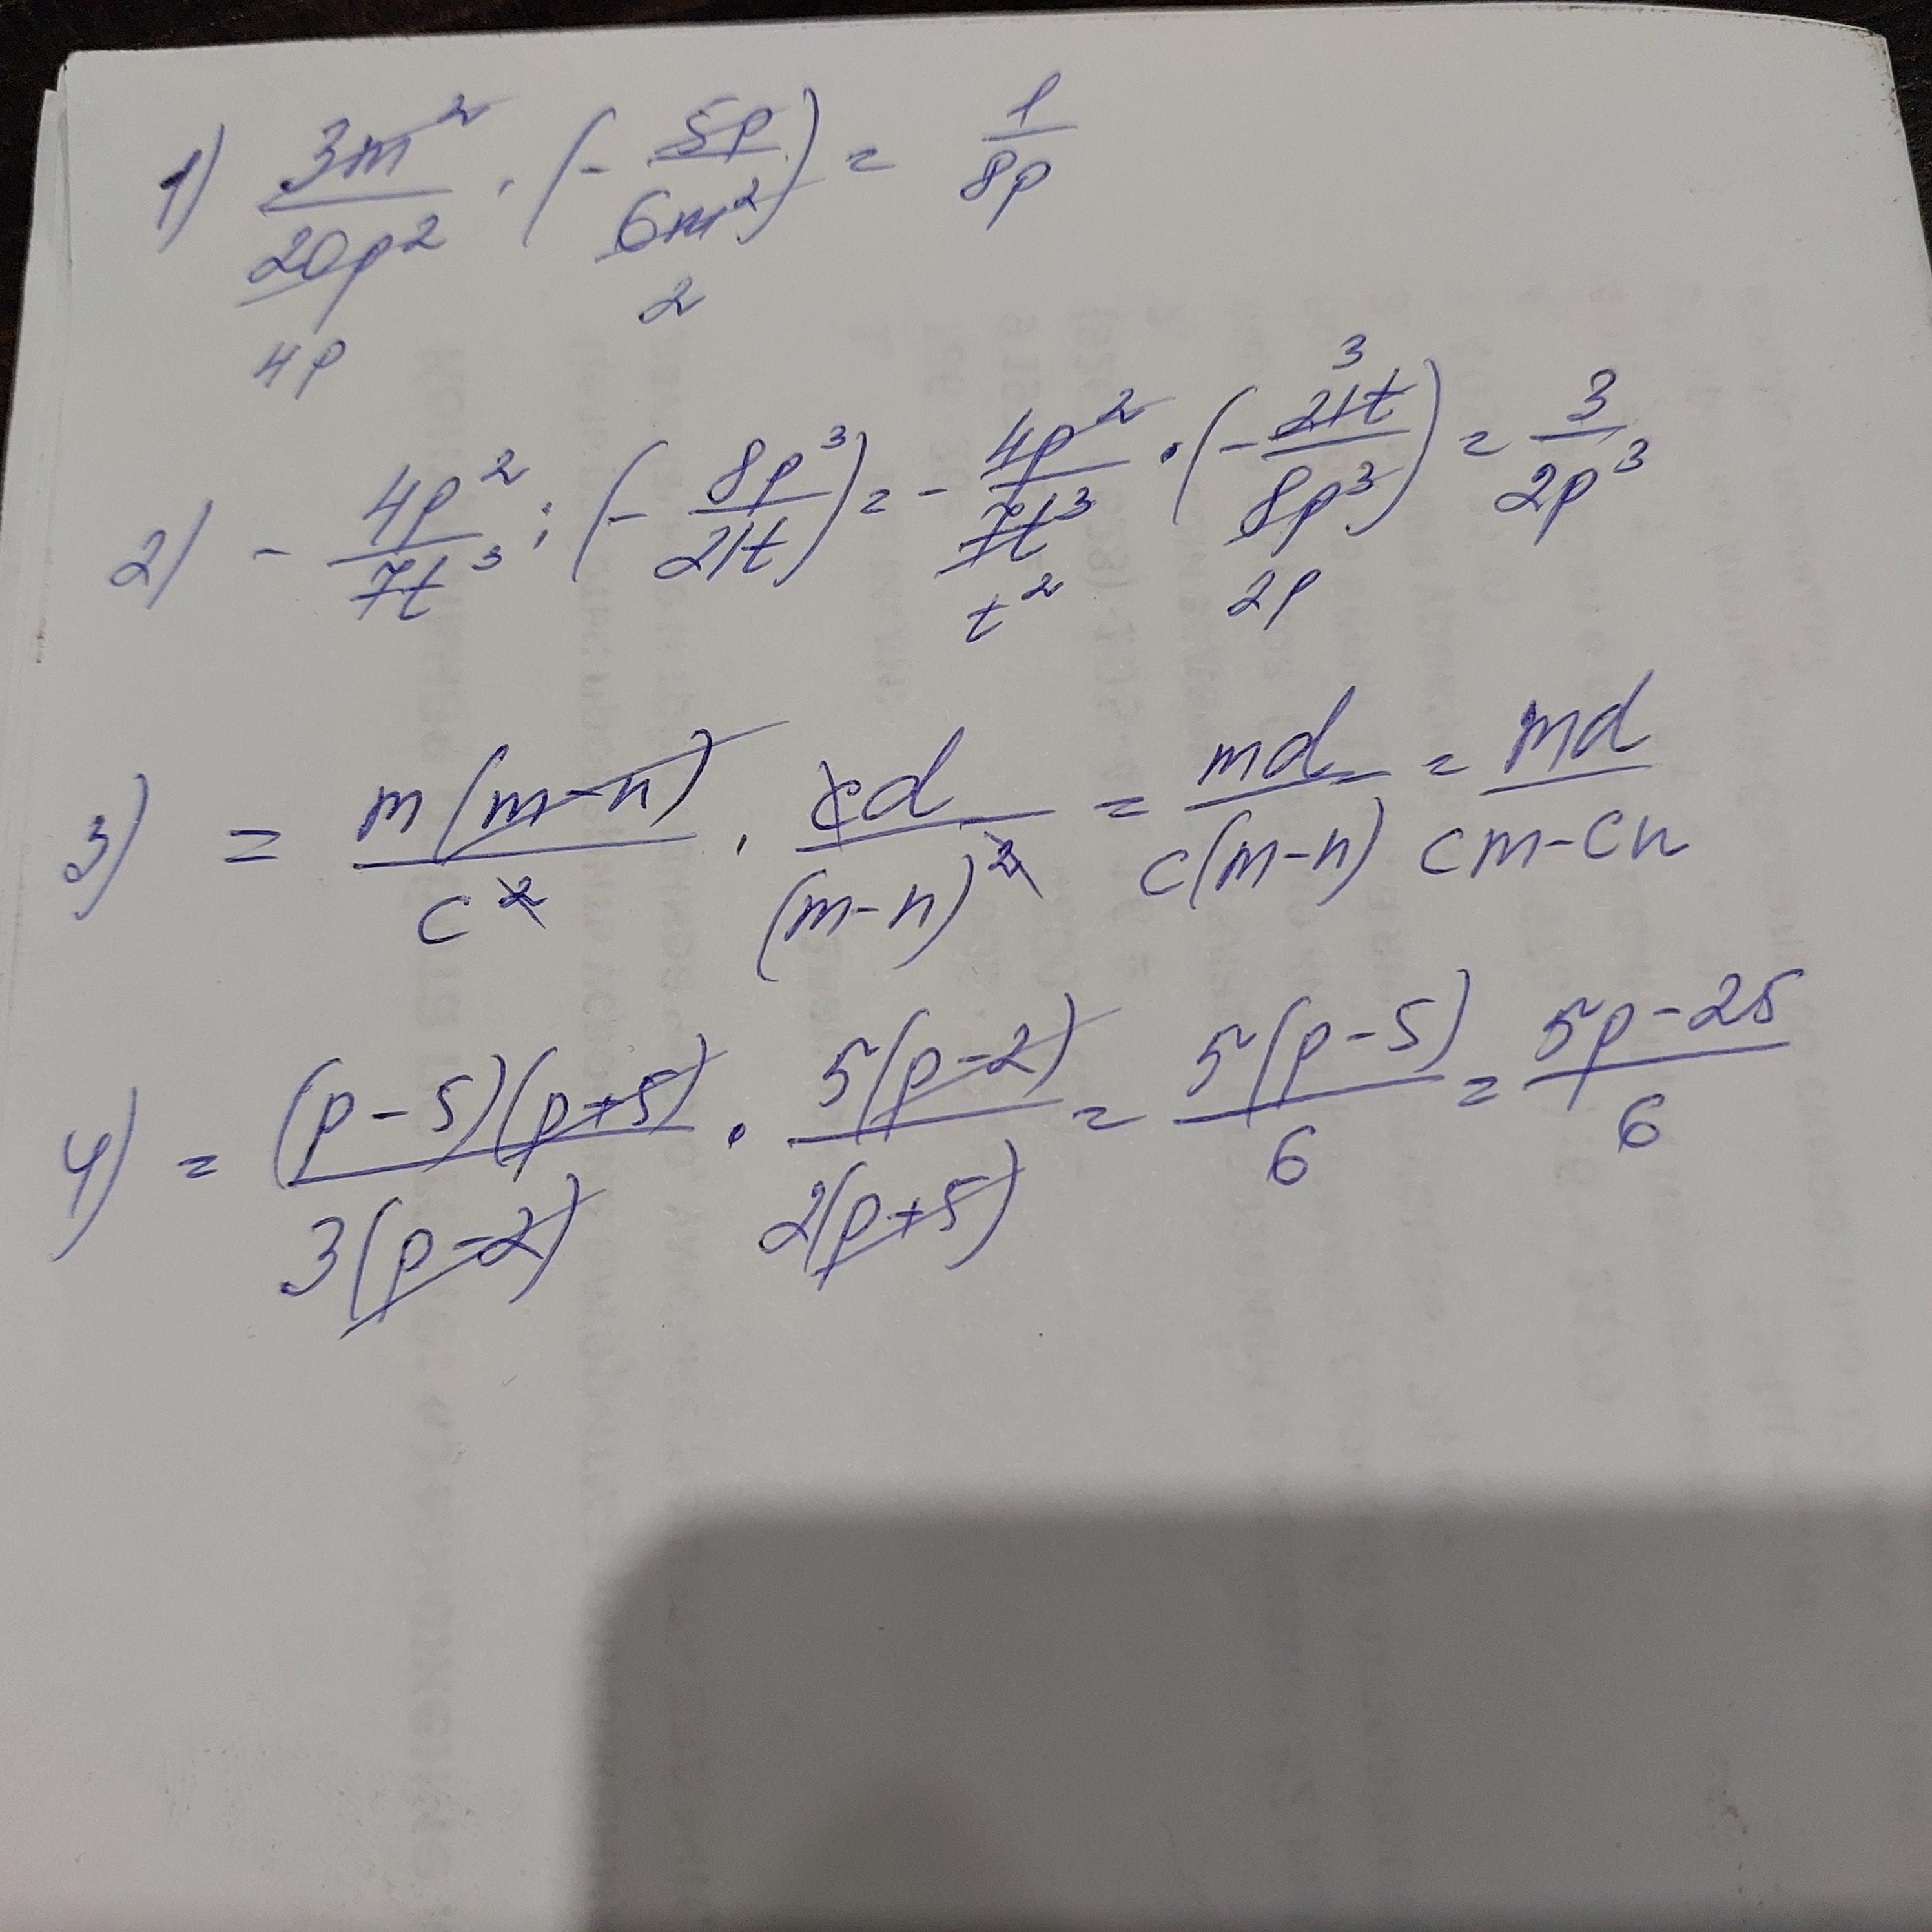 1) 3m²/20p² · (- 5p/6m²) = 1/8p
4p 2
2) - 4p²/7t³ : (- 8p³/21t) = - 4p²/7t³ · (- 21t/8p³) = 3/2p³
3 t² 2p
3) = m(m-n)/c² · cd/(m-n)² = md/c(m-n) = md/cm-cn
4) = (p-5)(p+5)/3(p-2) · 5(p-2)/2(p+5) = 5(p-5)/6 = 5p-25/6